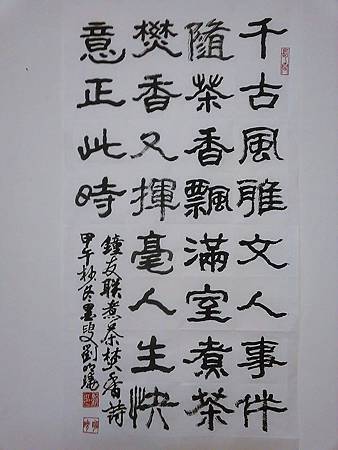 千古風雅文人事件
隨茶香飄滿室煮茶
焚香又揮毫人生快
意正此時
鐘友联煮茶焚香詩
甲午秋冬墨叟劉